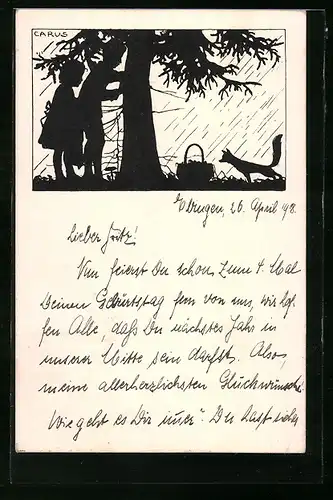 CARUS
26. April
Lieber Fritz!
Nun feierst Du schon zum 4. Mal
Deinen Geburtstag fern von uns, wir hof-
fen Alle, daß Du nächstes Jahr in
unserer Mitte sein darfst. Also,
meine allerherzlichsten Glückwünsche.
Wie geht es Dir Du hast